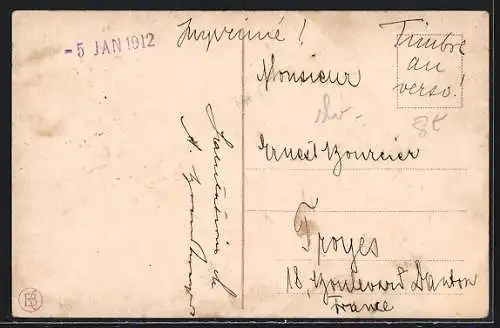 -5 JAN 1912
Imprimé !
Timbre
au
verso !
Monsieur
Ernest Bourcier
Troyes
18, Boulevard Danton
France
de
A.